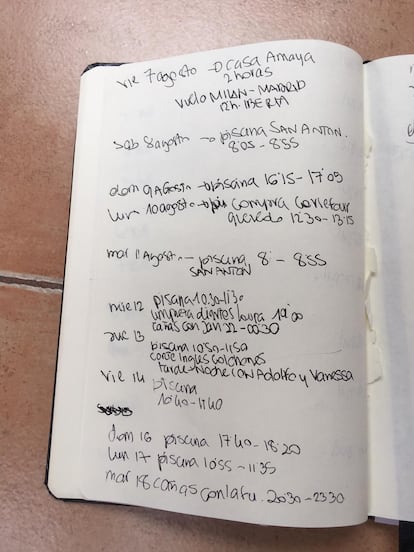 vie 7 agosto → casa Amaya
2 horas
vuelo MILAN - MADRID
12h. IBERIA
sab 8 agosto → piscina SAN ANTON.
8'05 - 8'55
dom 9 Agosto → piscina 16'15 - 17'05
lun 10 agosto → compra Carrefour
quevedo 12'30 - 13'15
mar 11 Agosto → piscina 8' - 8'55
SAN ANTON
mie 12 piscina 10'30 - 11'30
limpieza dientes loura 19'00
cañas con Jan 22 - 00'30
jue 13
piscina 10'50 - 11'50
corte ingles colchones
tarde - Noche CON Adolfo y Vanessa
vie 14
piscina
10'40 - 11'40
dom 16 piscina 17'40 - 18'20
lun 17 piscina 10'55 - 11'35
mar 18 cañas con lafu. 20'30 - 23'30